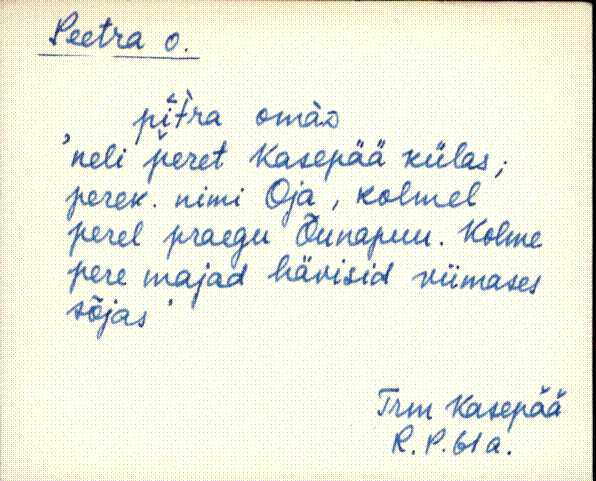 Peetra o.
pît̀ra omàᴅ
'neli peret Kasepää külas;
perek. nimi Oja, kolmel
perel praegu Õunapuu. Kolme
pere majad hävisid viimases
sõjas'
Trm Kasepää
R. P. 61 a.